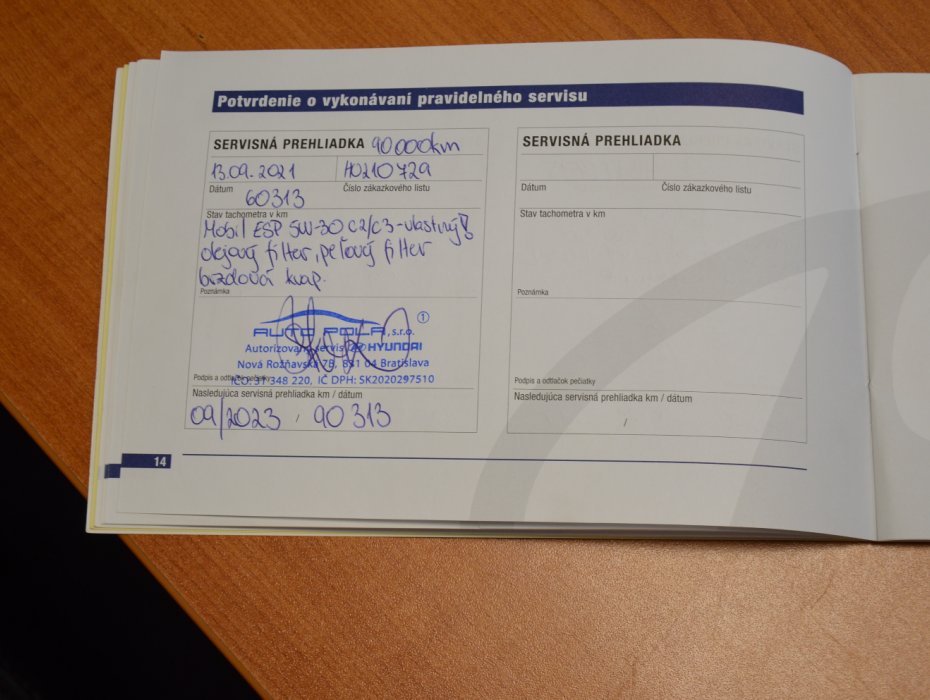 Potvrdenie o vykonávaní pravidelného servisu
SERVISNÁ PREHLIADKA 90 000km
13.09.2021 H0210729
Dátum Číslo zákazkového listu
60313
Stav tachometra v km
Mobil ESP 5W-30 C2/C3-vlastný!
olejový filter, peľový filter
brzdová kvap.
Poznámka
AUTO POLA, s.r.o. 1
Autorizovaný servis HYUNDAI
Nová Rožňavská 78, 831 04 Bratislava
Podpis a odtlačok pečiatky
IČO: 31 348 220, IČ DPH: SK2020297510
Nasledujúca servisná prehliadka km / dátum
09/2023 / 90 313
SERVISNÁ PREHLIADKA
Dátum Číslo zákazkového listu
Stav tachometra v km
Poznámka
Podpis a odtlačok pečiatky
Nasledujúca servisná prehliadka km / dátum
/
14